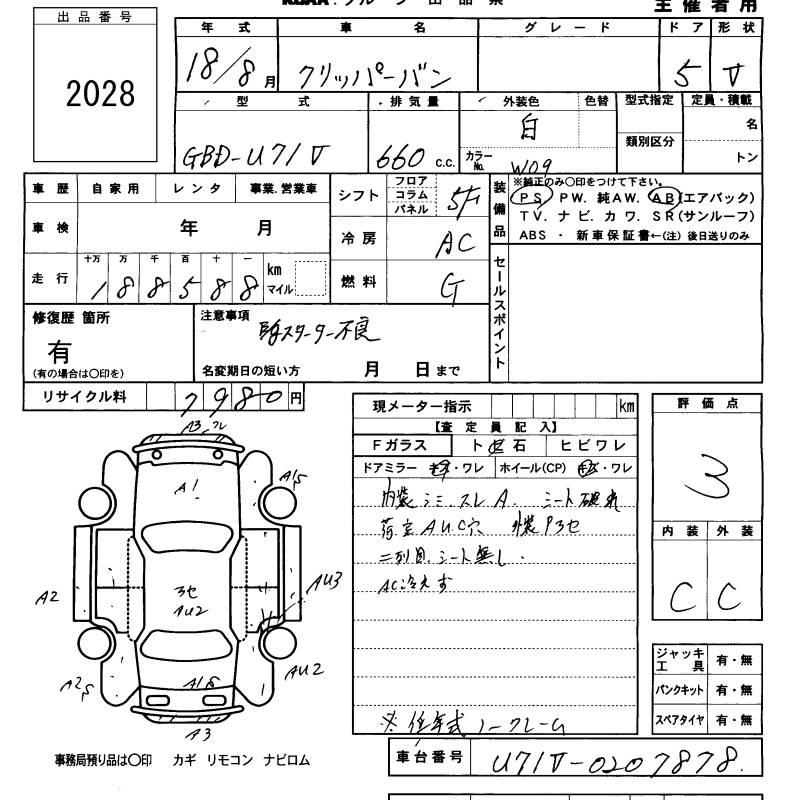 主催者用
出品番号
2028
年式 車名 グレード ドア 形状
18/8月 クリッパーバン 5 V
型式 排気量 外装色 色替 型式指定 定員・積載
GBD-U71V 660 c.c. 白 類別区分 名
カラーNo. W09 トン
車歴 自家用 レンタ 事業.営業車 シフト フロア コラム パネル 5F
車検 年 月 冷房 AC
走行 十万 万 千 百 十 一
188588 km マイル 燃料 G
装備品 ※純正のみ〇印をつけて下さい。
PS PW. 純AW. AB(エアバック)
TV. ナビ. カワ. SR(サンルーフ)
ABS ・ 新車保証書←(注) 後日送りのみ
セールスポイント
修復歴 箇所
有
(有の場合は〇印を)
注意事項
スターター不良
名変期日の短い方 月 日まで
リサイクル料 7980円
現メーター指示 km
【査定員記入】
Fガラス ト 石 ヒビワレ
ドアミラー ・ワレ ホイール(CP) ・ワレ
内装シミ スレA. シート破れ
荷室AU.C穴 外装P3セ
二列目.シート無し.
AC冷えず
※低年式ノークレーム
評価点
3
内装 外装
C C
ジャッキ工具 有・無
パンクキット 有・無
スペアタイヤ 有・無
車台番号 U71V-0207878.
A3
A1
A15
A2
3セ
AU2
AU3
AU2
A3
事務局預り品は〇印 カギ リモコン ナビロム